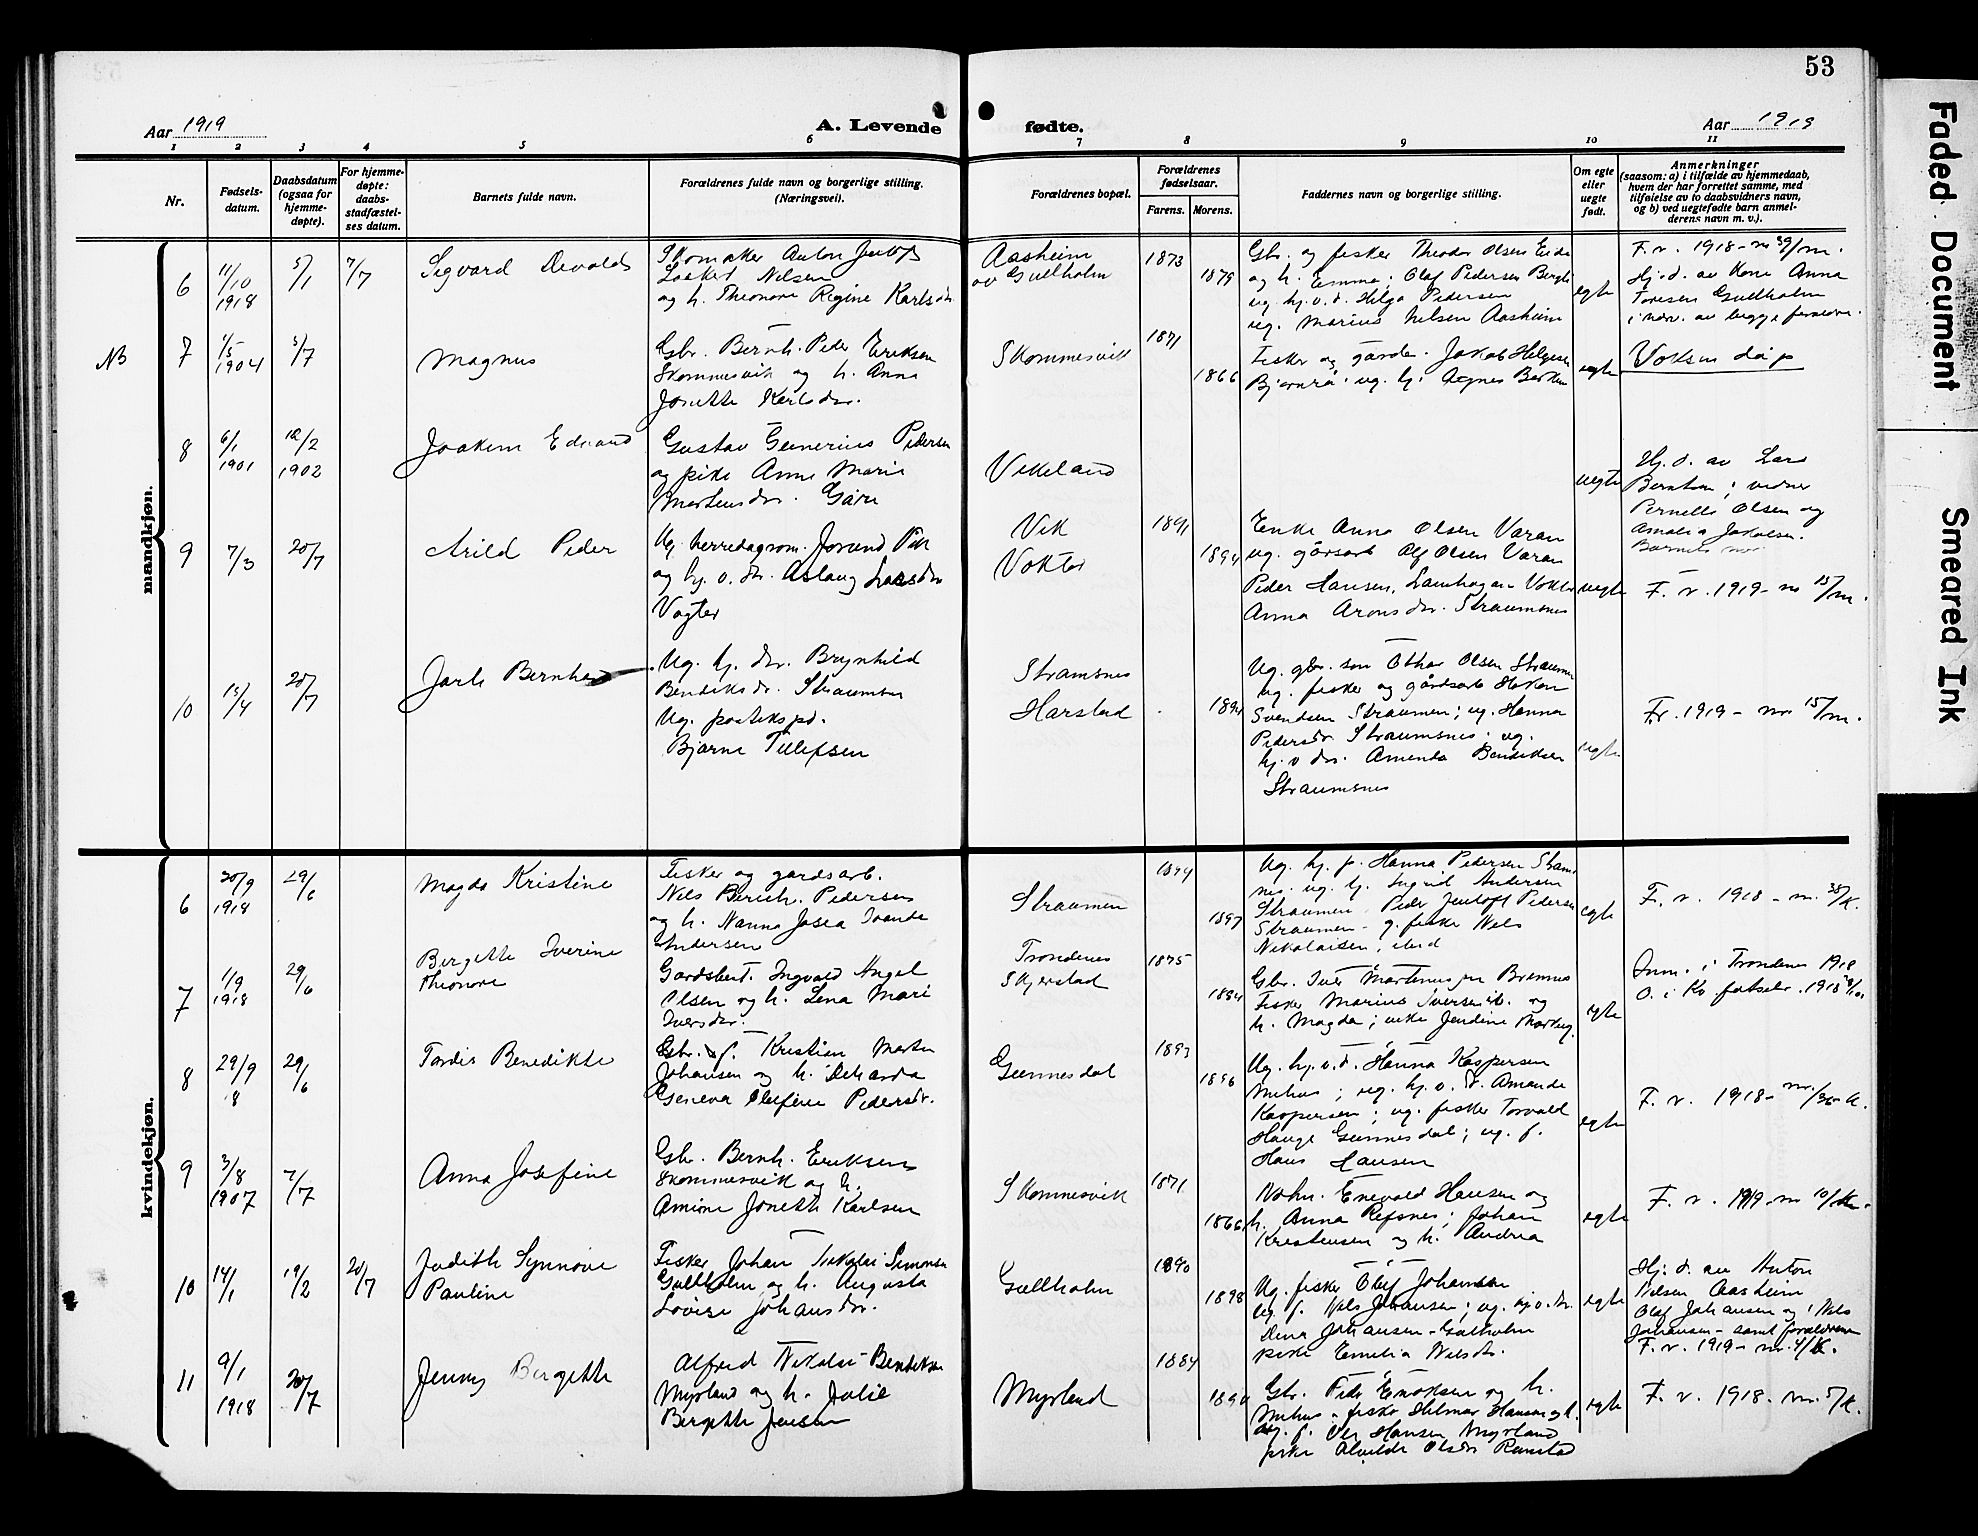 53
Aar 1919
A. Levende
fødte.
Aar 1919
1 2 3 4 5 6 7 8 9 10 11
Nr.
Fødsels-
datum.
Daabsdatum
(ogsaa for
hjemme-
døpte).
For hjemme-
døpte:
daabs-
stadfæstel-
ses datum.
Barnets fulde navn.
Forældrenes fulde navn og borgerlige stilling.
(Næringsvei).
Forældrenes bopæl.
Forældrenes
fødselsaar.
Farens. Morens.
Faddernes navn og borgerlige stilling.
Om egte
eller
uegte
født.
Anmerkninger
(saasom: a) i tilfælde av hjemmedaab,
hvem der har forrettet samme, med
tilføielse av to daabsvidners navn,
og b) ved uegtefødte barn anmel-
derens navn m. v.).
mandkjøn.
6
11/10
1918
5/1
7/7
Sigvard Devolds
Skomaker Anton
Nilsen
og h. Theonore Regine Karlsdr
Aasheim
av Gullholm
1873
1879
Gbr. og fisker Theodor Olsen Eide
og h. Emma; Olaf Pedersen
ug. hj.v.d. Helga Pedersen
ug. Marius Nilsen Aasheim
egte
F. v. 1918 - nr 39/m.
Hj. d. av Kone Anna
Toresen Gullholm
i nærv. av begge
NB
7
1/5
1904
5/7
Magnus
Gbr. Bernh. Peder Eriksen
Skommesvik og h. Anna
Jonette Karlsdr.
Skommesvik
1871
1866
Fisker og Jakob Helgesen
ug. hj. Agnes
egte
Voksen dåp
8
6/1
1901
12/2
1902
Joakim Edvard
Gustav Pedersen
og pike Anne Marie
Martensdr. Gåre
Vikeland
uegte
Hj. d. av Lars
Berntsen; vidner
Pernelle Olsen og
Amalia Jakobsen.
Barnets mor
9
7/3
20/7
Arild Peder
Ug. herredagrom.
og hj. v. dr. Aslaug Larsdr
Vogter
Vik
Vokter
1891
1894
Enke Anna Olsen Varan
ug. gårsarb Olsen Varan
Peder Hansen, Vokter
Anna Aronsdr. Straumsnes
uegte
F. v. 1919 - nr 15/m.
10
15/4
20/7
Jarle Bernhard
Ug. hj. dr. Brynhild
Bendiksdr. Straumsnes
Ug. postekspd.
Bjarne Tollefsen
Stramsnes
Harstad
1894
Ug. gbr. søn Othar Olsen Straumen
ug. fisker og gårdsarb Håkon
Svendsen Straumen; ug. Hanna
Pedersdr Straumsnes; ug.
hj. v dr. Amanda Bendiksen
Straumsnes
uegte
Fr. 1919 - nr 15/m.
kvindekjøn.
6
20/9
1918
29/6
Magda Kristine
Fisker og gardsarb.
Nils Berich. Pedersen
og h. Nanna Josea
Andersen
Straumen
1894
1897
Ug. hj. p. Hanna Pedersen Straums
nes. ug. hj. Ingrid Andersen
Straumen. Peder Jentoft Pedersen
Straumen - g. fisker Nils
Nikolaisen, ibid
egte
F. v. 1918 - nr. 38/K.
7
1/9
1918
29/6
Bergette Iverine
Theonore
Gardsbest. Ingvald Angel
Olsen og h. Lena Mari
Iversdr.
Trondenes
Skjerstad
1895
1894
Gbr. Iver Martinussen Bremnes
Fisker Marius Iversen ib. og
h. Magda; enke Jendine
egte
Anm. i Trondenes 1918
8
29/9
18
29/6
Tordis Benedikte
Gbr. & f. Kristian Martin
Johansen og h.
Geneva Olufine Pedersdr.
Gunnesdal
1893
1896
Ug. hj. v. d. Hanna Kaspersen
Melhus; ug. hj. v. d. Amanda
Kaspersen; ug. fisker Torvald
Hauge Gunnesdal; ug. f.
Hans Hansen
egte
F. v. 1918 - nr./36-K.
9
3/8
1907
7/7
Anna Josefine
Gbr. Bernh. Eriksen
Skommesvik og h.
Amine Jonette Karlsen
Skommesvik
1871
1866
Enevald Hansen og
h. Anna Refsnes; Johan
Kristensen og h. Andrea
egte
F. v. 1919 nr 10/K.
10
14/1
19/2
20/7
Judith Synnøve
Pauline
Fisker Johan Nikolai Simonsen
Gullholm og h. Augusta
Lovise Johansdr.
Gullholm
1890
1898
Ug. fisker Oluf Johansen
ug. f. Nils Johansen; ug. hj. v. dr.
Dina Johansen - Gulholm
pike Emelia Nilsdr.
egte
Hj. d. av Anton
Nilsen Aasheim
Olaf Johansen og Nils
Johansen - samt forældrene
F. v. 1919 - nr. 4/K.
11
9/1
1918
20/7
Jenny Bergette
Alfred Nikolai Bendiksen
Myrland og h. Julie
Bergette Jensen
Myrland
1884
1890
Gbr. Peder Enoksen og h.
Melhus; fisker Hilmar Hansen og h.
ug. f. Ole Hansen Myrland
pike Alvilde Olsdr Ramstad
egte
F. v. 1918. nr. 5/K.
Faded Document
Smeared Ink